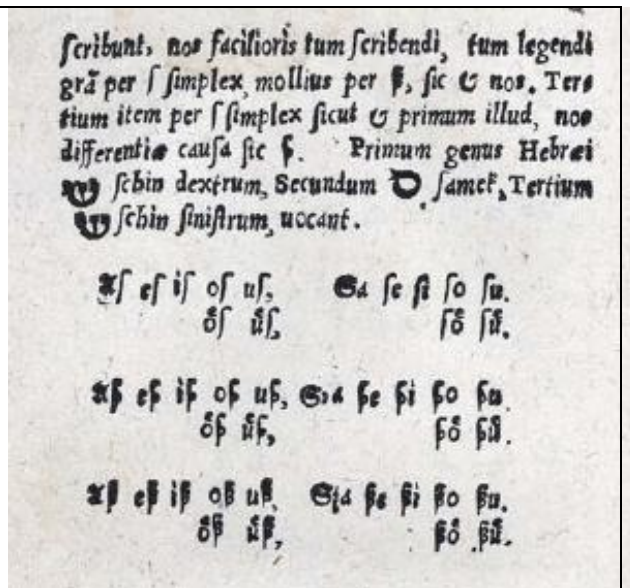 ſcribunt, nos facilioris tum ſcribendi, tum legendi
grã per ſ ſimplex, mollius per ß, ſic & nos. Ter⸗
tium item per ſ ſimplex ſicut & primum illud, nos
differentiæ cauſa ſic ẜ. Primum genus Hebræi
שׁ ſchin dextrum, Secundum ס ſamek, Tertium
שׂ ſchin ſiniſtrum, uocant.
Aſ eſ iſ oſ uſ, Sa ſe ſi ſo ſu.
oͤſ uͤſ, ſoͤ ſuͤ.
Aẜ eẜ iẜ oẜ uẜ, Sia ẜe ẜi ẜo ẜu.
oͤẜ uͤẜ, ẜoͤ ẜuͤ.
Aß eß iß oß uß, Sza ße ßi ßo ßu.
oͤß uͤß, ßoͤ ßuͤ.